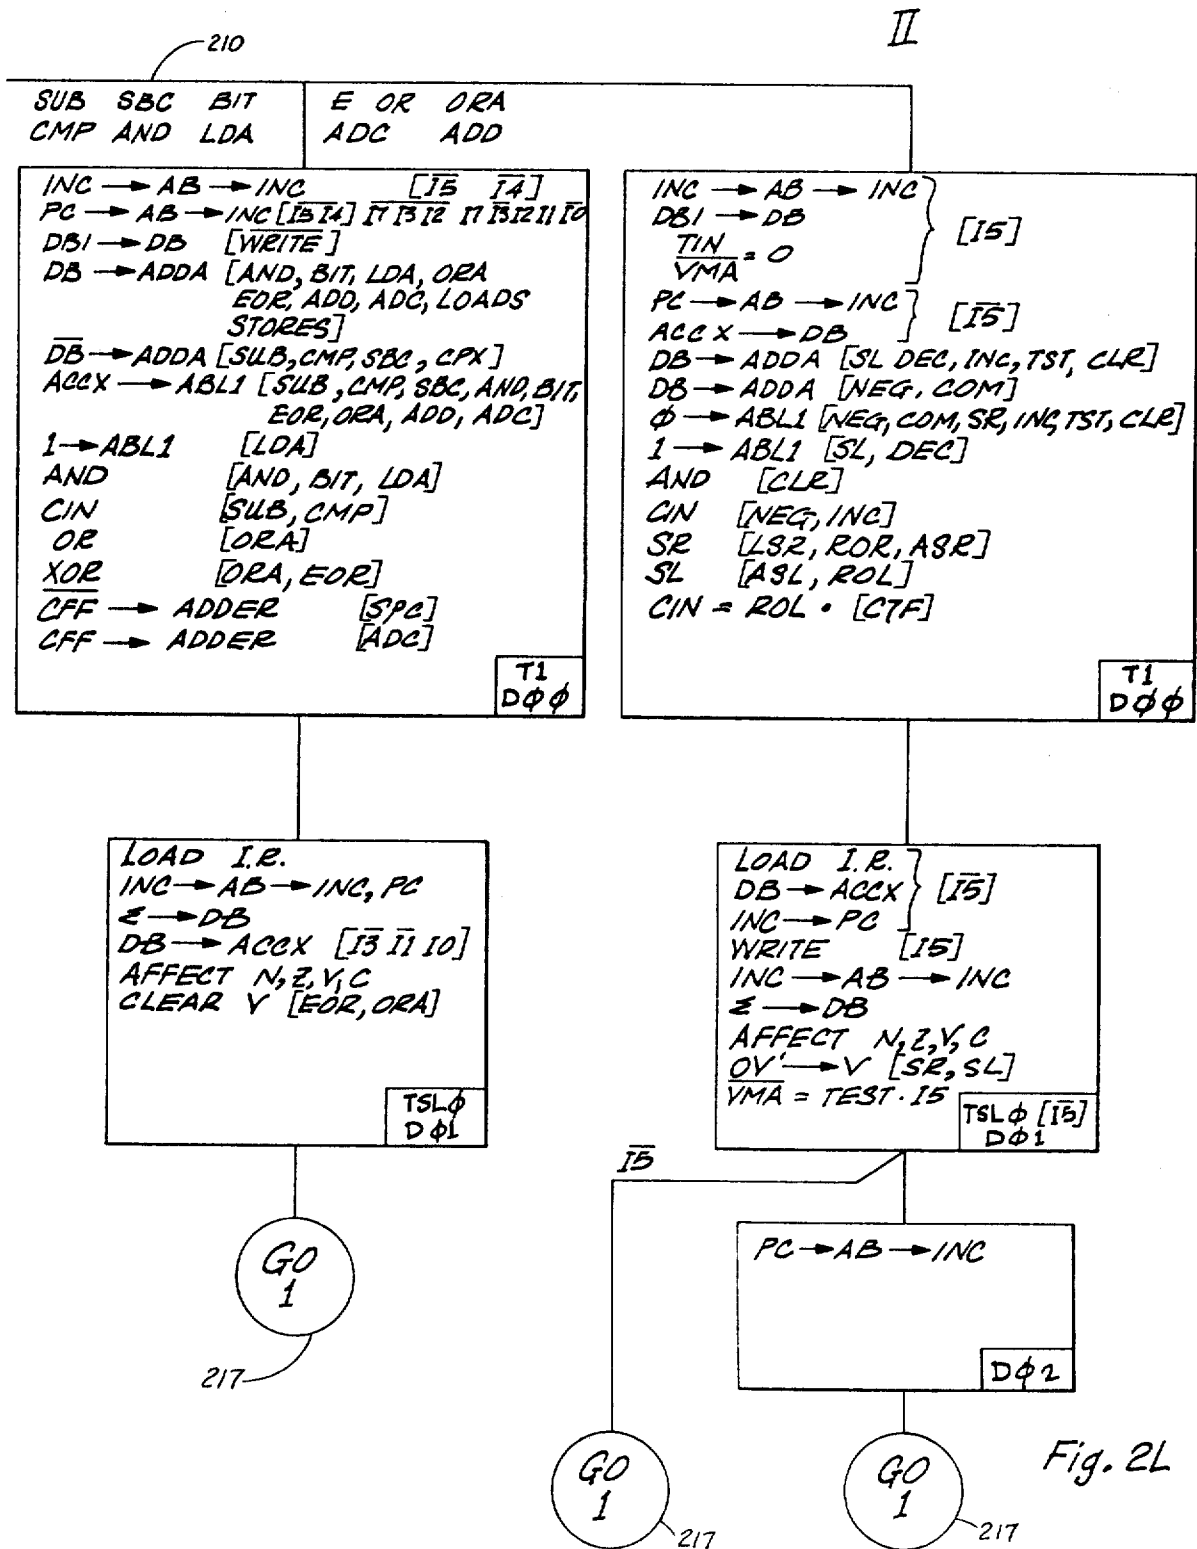 II
210
SUB SBC BIT
CMP AND LDA
E OR ORA
ADC ADD
INC → AB → INC [I̅5̅ I̅4̅]
PC → AB → INC [I̅5̅ I̅4̅] I̅7̅ I̅3̅ I̅2̅ I7 I̅3̅ I2 I1 I̅0̅
DBI → DB [W̅R̅I̅T̅E̅]
DB → ADDA [AND, BIT, LDA, ORA
EOR, ADD, ADC, LOADS
STORES]
D̅B̅ → ADDA [SUB, CMP, SBC, CPX]
ACCX → ABL1 [SUB, CMP, SBC, AND, BIT,
EOR, ORA, ADD, ADC]
1 → ABL1 [LDA]
AND [AND, BIT, LDA]
CIN [SUB, CMP]
OR [ORA]
XOR [ORA, EOR]
C̅F̅F̅ → ADDER [SPC]
CFF → ADDER [ADC]
T1
DØØ
INC → AB → INC
DBI → DB
TIN
V̅M̅A̅ = 0
[I5]
PC → AB → INC
ACC X → DB
[I̅5̅]
DB → ADDA [SL DEC, INC, TST, CLR]
DB → ADDA [NEG, COM]
Ø → ABL1 [NEG, COM, SR, INC, TST, CLR]
1 → ABL1 [SL, DEC]
AND [CLR]
CIN [NEG, INC]
SR [LSR, ROR, ASR]
SL [ASL, ROL]
CIN = ROL • [C7F]
T1
DØØ
LOAD I.R.
INC → AB → INC, PC
Σ → DB
DB → ACCX [I̅3̅ I̅1̅ I0]
AFFECT N, Z, V, C
CLEAR V [EOR, ORA]
TSLØ
DØ1
LOAD I.R.
DB → ACCX [I̅5̅]
INC → PC
WRITE [I5]
INC → AB → INC
Σ → DB
AFFECT N, Z, V, C
OV' → V [SR, SL]
V̅M̅A̅ = TEST · I5
TSLØ [I̅5̅]
DØ1
I̅5̅
PC → AB → INC
DØ2
GO
1
217
GO
1
217
GO
1
217
Fig. 2L